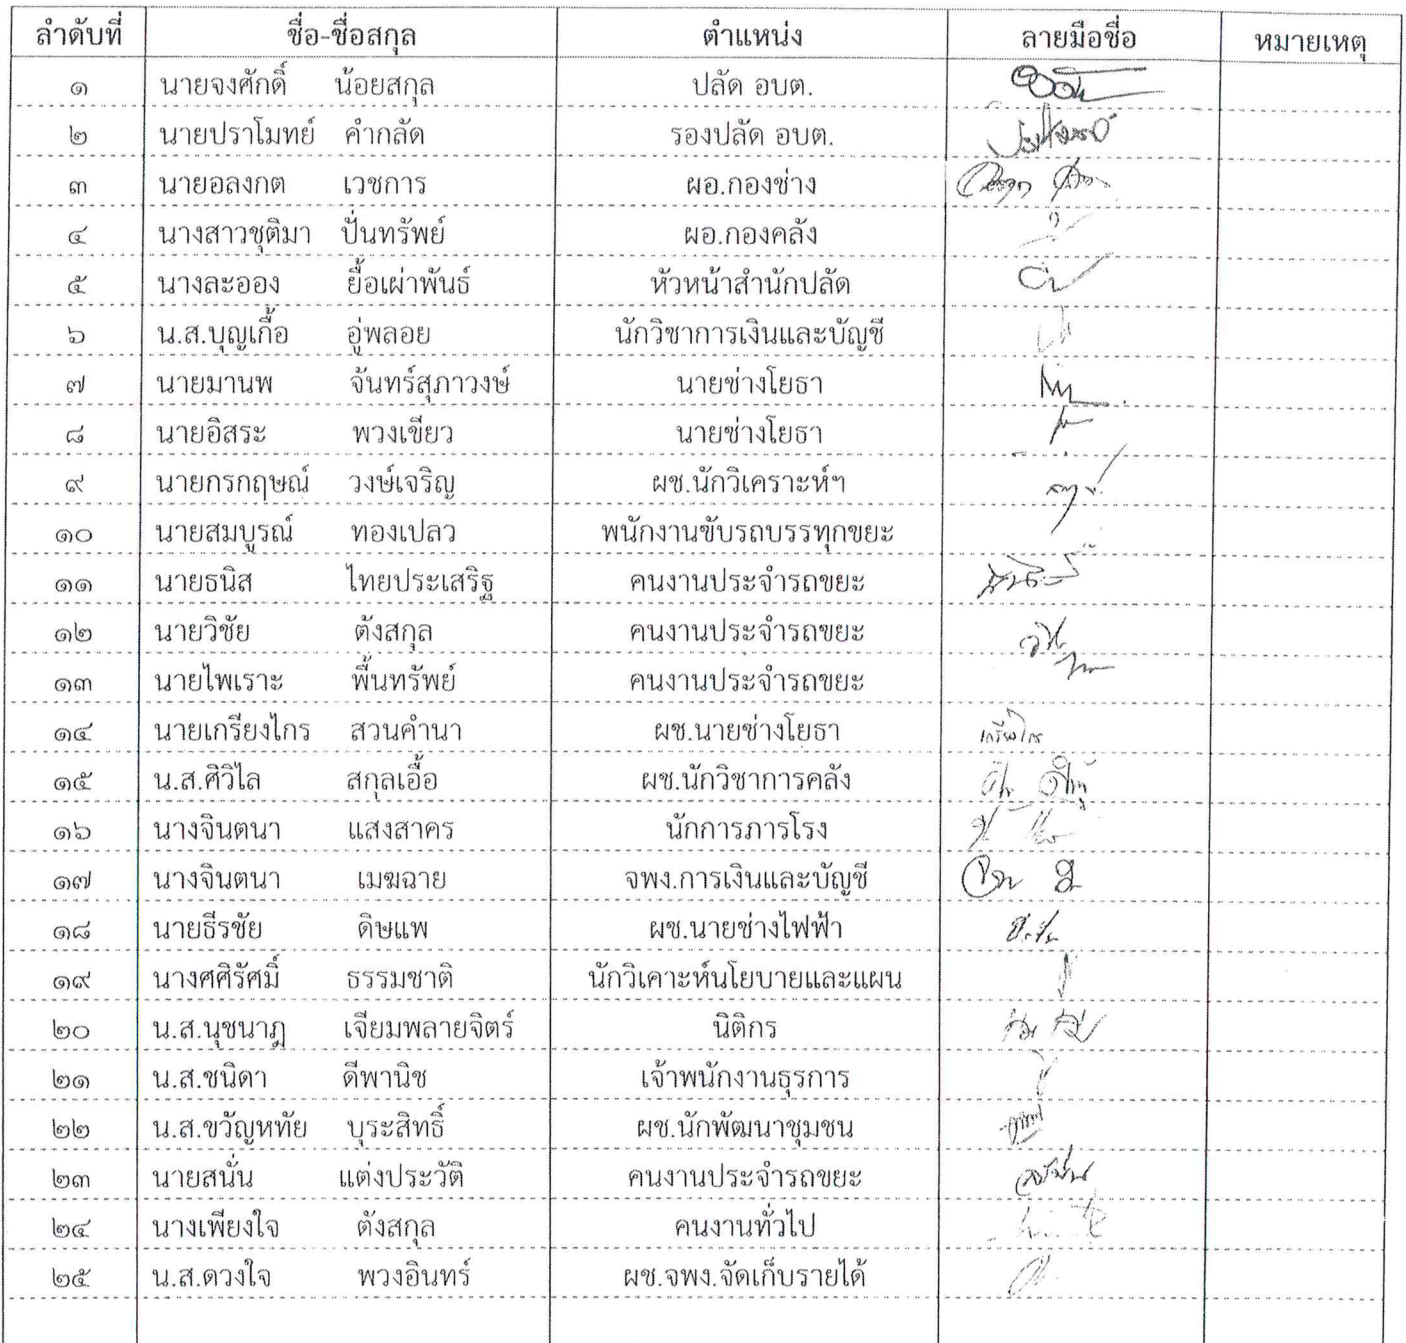 ลำดับที่ ชื่อ-ชื่อสกุล ตำแหน่ง ลายมือชื่อ หมายเหตุ
๑ นายจงศักดิ์ น้อยสกุล ปลัด อบต.
๒ นายปราโมทย์ คำกลัด รองปลัด อบต.
๓ นายอลงกต เวชการ ผอ.กองช่าง
๔ นางสาวชุติมา ปั่นทรัพย์ ผอ.กองคลัง
๕ นางละออง ยื้อเผ่าพันธ์ หัวหน้าสำนักปลัด
๖ น.ส.บุญเกื้อ อู่พลอย นักวิชาการเงินและบัญชี
๗ นายมานพ จันทร์สุภาวงษ์ นายช่างโยธา
๘ นายอิสระ พวงเขียว นายช่างโยธา
๙ นายกรกฤษณ์ วงษ์เจริญ ผช.นักวิเคราะห์ฯ
๑๐ นายสมบูรณ์ ทองเปลว พนักงานขับรถบรรทุกขยะ
๑๑ นายธนิส ไทยประเสริฐ คนงานประจำรถขยะ
๑๒ นายวิชัย ตังสกุล คนงานประจำรถขยะ
๑๓ นายไพเราะ พื้นทรัพย์ คนงานประจำรถขยะ
๑๔ นายเกรียงไกร สวนคำนา ผช.นายช่างโยธา เกรียงไกร
๑๕ น.ส.ศิวิไล สกุลเอื้อ ผช.นักวิชาการคลัง
๑๖ นางจินตนา แสงสาคร นักการภารโรง
๑๗ นางจินตนา เมฆฉาย จพง.การเงินและบัญชี
๑๘ นายธีรชัย ดิษแพ ผช.นายช่างไฟฟ้า
๑๙ นางศศิรัศมิ์ ธรรมชาติ นักวิเคาะห์นโยบายและแผน
๒๐ น.ส.นุชนาฎ เจียมพลายจิตร์ นิติกร
๒๑ น.ส.ชนิดา ดีพานิช เจ้าพนักงานธุรการ
๒๒ น.ส.ขวัญหทัย บุระสิทธิ์ ผช.นักพัฒนาชุมชน
๒๓ นายสนั่น แต่งประวัติ คนงานประจำรถขยะ
๒๔ นางเพียงใจ ตังสกุล คนงานทั่วไป
๒๕ น.ส.ดวงใจ พวงอินทร์ ผช.จพง.จัดเก็บรายได้